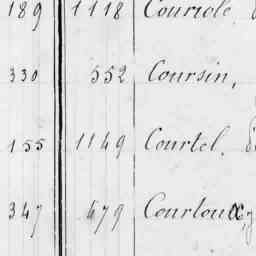 189 1118 Couriole
330 552 Coursin,
155 1149 Courtel.
347 479 Courtoux,